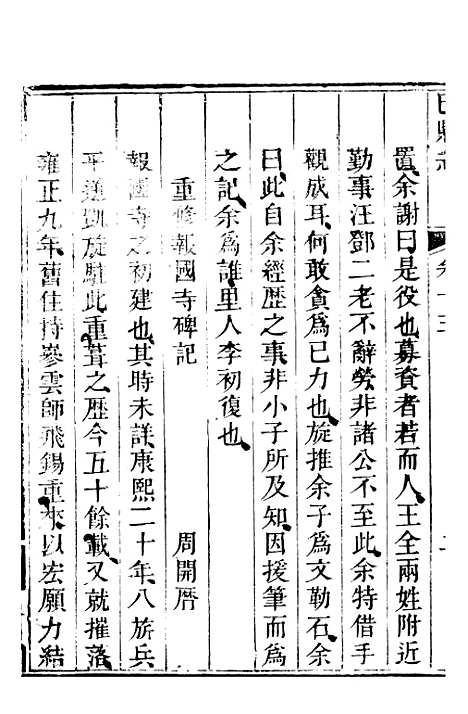 巴縣志 卷十三
置余謝曰是役也募資者若而人王全兩姓附近
勤事汪鄧二老不辭勞非諸公不至此余特借手
觀成耳何敢貪為已力也旋推余子為文勒石余
曰此自余經歷之事非小子所及知因援筆而為
之記余為誰里人李初復也
重修報國寺碑記 周開厝
報國寺之初建也其時未詳康熙二十年八旂兵
平蓮凱旋駐此重葺之歷今五十餘載又就摧落
雍正九年舊住持嵾雲師飛錫重來以宏願力結